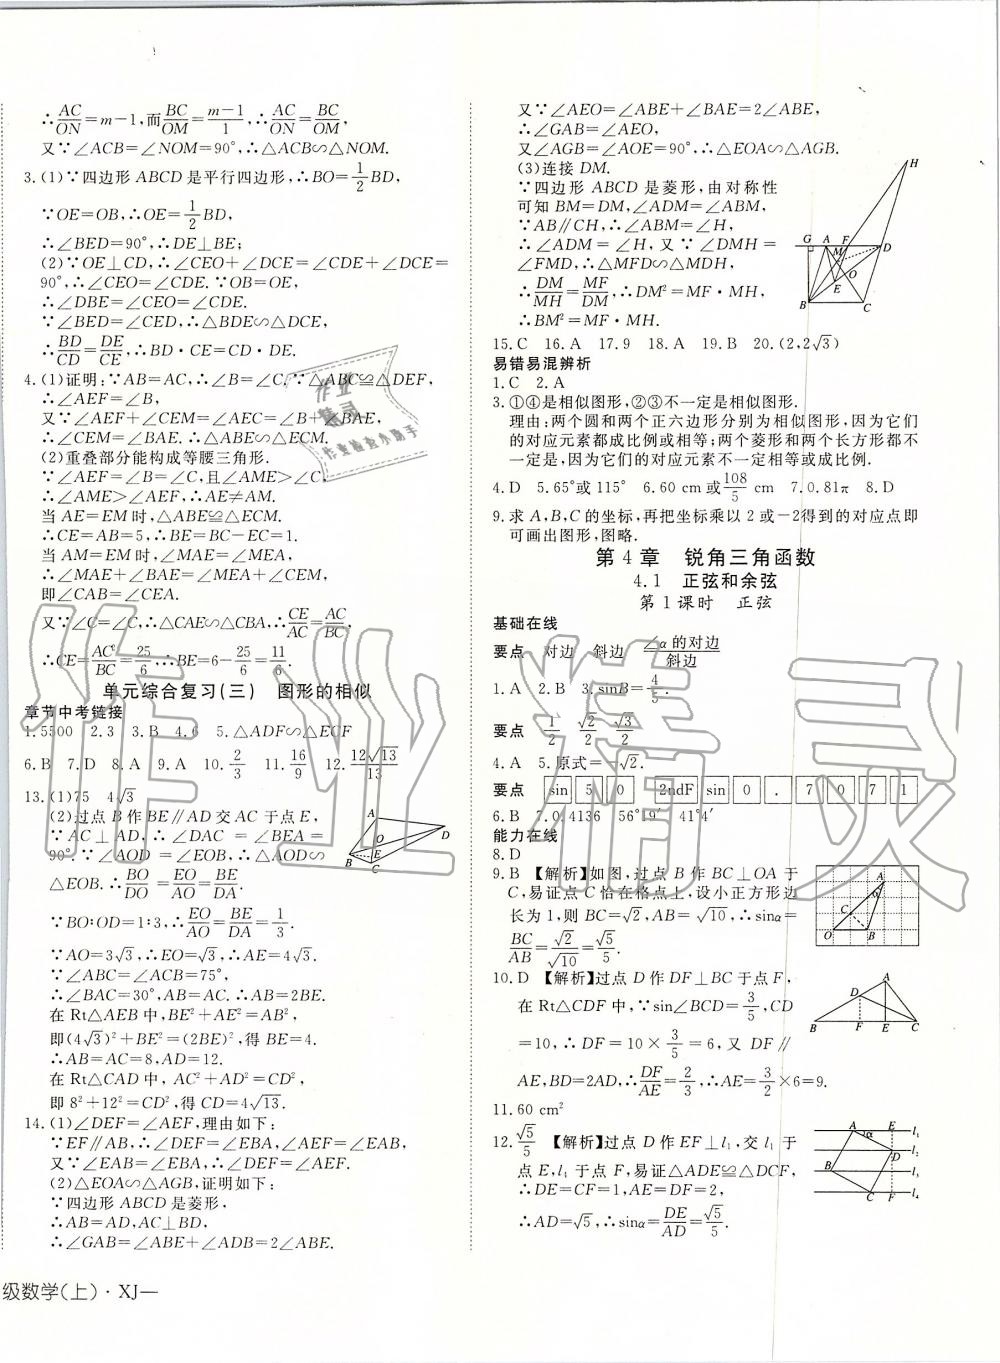 ∴AC/ON=m-1,而BC/OM=(m-1)/1,∴AC/ON=BC/OM,
又∵∠ACB=∠NOM=90°,∴△ACB∽△NOM.
3.(1)∵四边形 ABCD 是平行四边形,∴BO=1/2BD,
∵OE=OB,∴OE=1/2BD,
∴∠BED=90°,∴DE⊥BE;
(2)∵OE⊥CD,∴∠CEO+∠DCE=∠CDE+∠DCE=
90°,∴∠CEO=∠CDE.∵OB=OE,
∴∠DBE=∠CEO=∠CDE.
∵∠BED=∠CED,∴△BDE∽△DCE,
∴BD/CD=DE/CE,∴BD·CE=CD·DE.
4.(1)证明:∵AB=AC,∴∠B=∠C.∵△ABC≌△DEF,
∴∠AEF=∠B,
又∵∠AEF+∠CEM=∠AEC=∠B+∠BAE,
∴∠CEM=∠BAE.∴△ABE∽△ECM.
(2)重叠部分能构成等腰三角形.
∵∠AEF=∠B=∠C,且∠AME>∠C,
∴∠AME>∠AEF,∴AE≠AM.
当 AE=EM时,△ABE≌△ECM.
∴CE=AB=5,∴BE=BC-EC=1.
当 AM=EM 时,∠MAE=∠MEA,
∴∠MAE+∠BAE=∠MEA+∠CEM,
即∠CAB=∠CEA.
又∵∠C=∠C,∴△CAE∽△CBA,∴CE/AC=AC/BC,
∴CE=AC²/BC=25/6,∴BE=6-25/6=11/6.
单元综合复习(三) 图形的相似
章节中考链接
1.5500 2.3 3.B 4.6 5.△ADF∽△ECF
6.B 7.D 8.A 9.A 10.2/3 11.16/9 12.12√13/13
13.(1)75 4√3
(2)过点 B 作 BE∥AD 交 AC 于点 E,
∵AC⊥AD,∴∠DAC=∠BEA=
90°.∵∠AOD=∠EOB,∴△AOD∽
△EOB.∴BO/DO=EO/AO=BE/DA.
∵BO∶OD=1∶3,∴EO/AO=BE/DA=1/3.
∵AO=3√3,∴EO=√3,∴AE=4√3.
∵∠ABC=∠ACB=75°,
∴∠BAC=30°,AB=AC.∴AB=2BE.
在 Rt△AEB 中,BE²+AE²=AB²,
即(4√3)²+BE²=(2BE)²,得 BE=4.
∴AB=AC=8,AD=12.
在 Rt△CAD 中,AC²+AD²=CD²,
即 8²+12²=CD²,得 CD=4√13.
14.(1)∠DEF=∠AEF,理由如下:
∵EF∥AB,∴∠DEF=∠EBA,∠AEF=∠EAB,
又∵∠EAB=∠EBA,∴∠DEF=∠AEF.
(2)△EOA∽△AGB,证明如下:
∵四边形 ABCD 是菱形,
∴AB=AD,AC⊥BD,
∴∠GAB=∠ABE+∠ADB=2∠ABE.
级数学(上)·XJ—
又∵∠AEO=∠ABE+∠BAE=2∠ABE,
∴∠GAB=∠AEO,
又∠AGB=∠AOE=90°,∴△EOA∽△AGB.
(3)连接 DM.
∵四边形 ABCD 是菱形,由对称性
可知 BM=DM,∠ADM=∠ABM,
∵AB∥CH,∴∠ABM=∠H,
∴∠ADM=∠H,又∵∠DMH=
∠FMD,∴△MFD∽△MDH,
∴DM/MH=MF/DM,∴DM²=MF·MH,
∴BM²=MF·MH.
15.C 16.A 17.9 18.A 19.B 20.(2,2√3)
易错易混辨析
1.C 2.A
3.①④是相似图形,②③不一定是相似图形.
理由:两个圆和两个正六边形分别为相似图形,因为它们
的对应元素都成比例或相等;两个菱形和两个长方形都不
一定是相似图形,因为它们的对应元素不一定相等或成比例.
4.D 5.65°或 115° 6.60 cm或108/5 cm 7.0.81π 8.D
9.求 A,B,C 的坐标,再把坐标乘以 2 或-2得到的对应点即
可画出图形,图略.
第 4 章 锐角三角函数
4.1 正弦和余弦
第 1 课时 正弦
基础在线
要点 对边 斜边 ∠α的对边/斜边
1.A 2.B 3.sinB=4/5.
要点 1/2 √2/2 √3/2
4.A 5.原式=-√2.
要点 sin 5 0 2ndF sin 0 . 7 0 7 1
6.B 7.0.4136 56°19′ 41°4′
能力在线
8.D
9.B 【解析】如图,过点 B 作 BC⊥OA 于
C,易证点 C 恰在格点上,设小正方形边
长为 1,则 BC=√2,AB=√10,∴sinα=
BC/AB=√2/√10=√5/5.
10.D 【解析】过点 D 作 DF⊥BC 于点 F,
在 Rt△CDF 中,∵sin∠BCD=3/5,CD
=10,∴DF=10×3/5=6,又 DF∥
AE,BD=2AD,∴DF/AE=2/3,∴AE=3/2×6=9.
11.60 cm²
12.√5/5 【解析】过点 D 作 EF⊥l₁,交 l₁ 于
点 E,l₄ 于点 F,易证△ADE≌△DCF,
∴DE=CF=1,AE=DF=2,
∴AD=√5,∴sinα=DE/AD=√5/5.